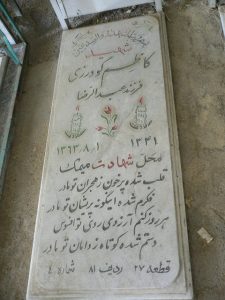 شهید
کاظم گودرزی
فرزند عبدالرضا
۱۳۴۱
۱۳۶۳.۸.۱
محل شهادت میمک
قلب شده پرخون ز هجران تو مادر
شده اینگونه پریشان تو مادر
هر روز کنم آرزوی روی تو افسوس
دستم شده کوتاه ز دامان تو مادر
قطعه ۲۷ ردیف ۸۱ شماره ۴